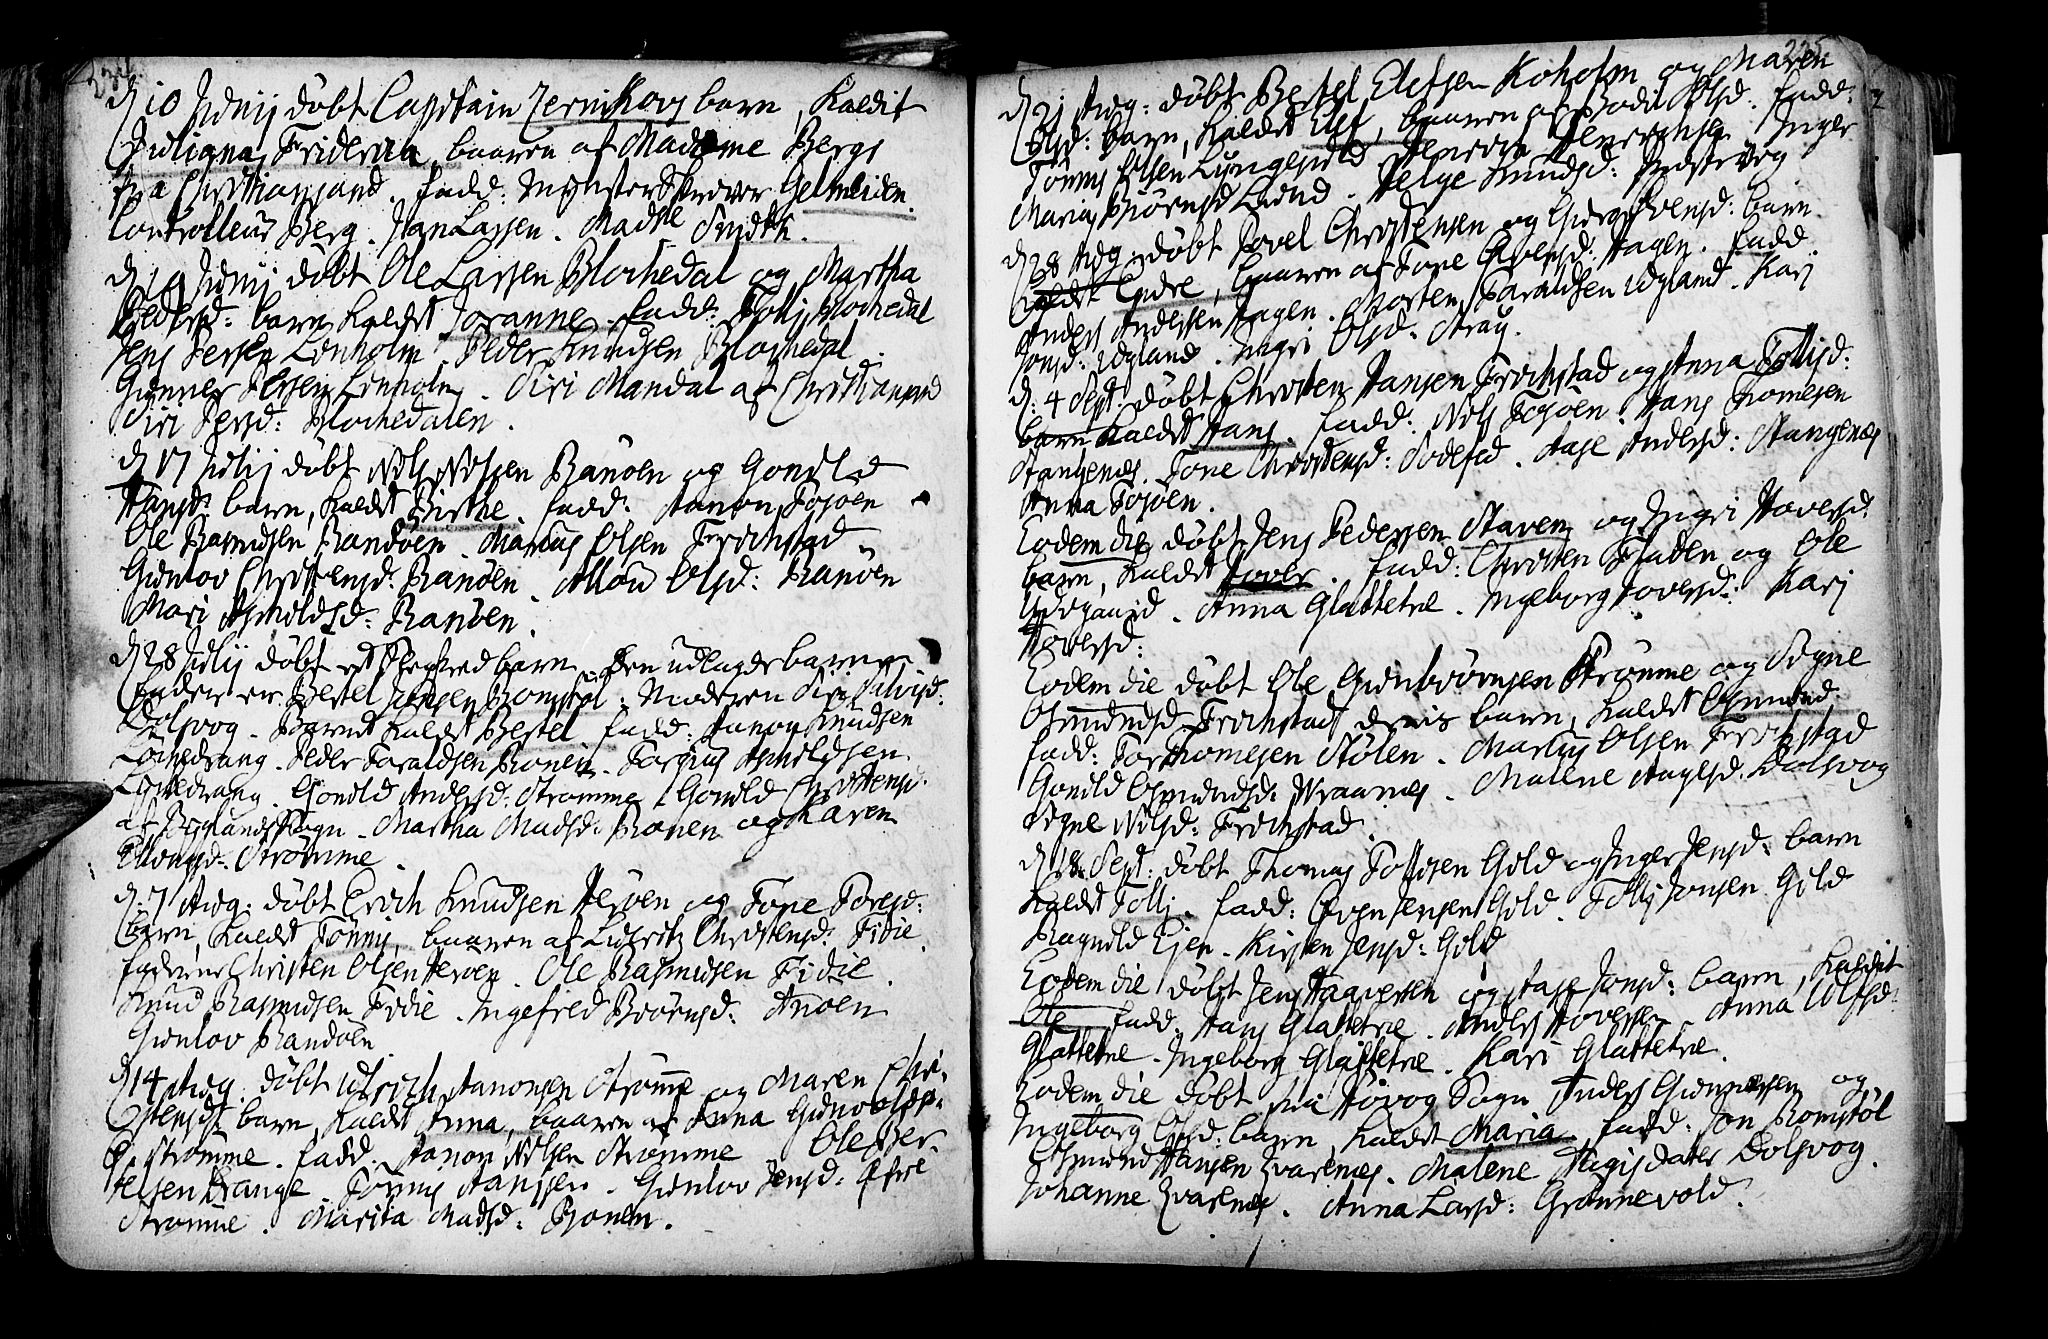 234.
d 10 Junij döbt Capitain Zernikovs barn, kaldit
Juliana Friderica, baaren af Madame Bergs
fra Christiansand. fadd: Mynster Skriver Gelmeiden.
Controlleur Berg. Jan Lassen. Madlle Smidth.
d 19 Junij döbt Ole Larsen Blochedal og Martha
Pedersd: barn kaldet Johanne. fadd: Tolij Blochedal
Jens Persen Lonholm. Peder Knudsen Blochedal.
Gunner Persen Lonholm. Siri Mandal af Christiansand
Siri Persd: Blochedalen.
d 17 Julij döbt Nils Nilsen Ranöen og Gonild
Hansd: barn, kaldet Birthe. fadd: Aanon Tosöen
Ole Rasmusen Randöen. Marcus Olsen Frochstad.
Gunlov Christensd: Ranöen. Allow Olsd: Ranöen
Mari Arnoldsd: Ranöen.
d 28 Julij döbt et Slegfred barn. Den udlagde barne
fader er Bertel Jensen Romstöl. Moderen Siri Salvisd:
Dolsvog. Barnet kaldet Bertel. fadd: Aanon Knudsen
Lochedrang. Peder Taraldsen Ronen. Torjus Arnoldsen
Lochedrang. Gonild Andersd: Strömme. Gonild Christensd:
af Bryglands Sogn. Martha Madsd: Ronen og Karen
Ellevsd: Strömme.
d: 7 Aug: döbt Erich Knudsen Heröen og Tone Toresd:
barn, kaldet Tönnis, baaren af Christensd: Fidie.
fadderne Christen Olsen Heröen. Ole Rasmusen Fidie.
Knud Rasmusen Fidie. Ingefred Biörnsd: Anöen
Gunlov Randöen
d 14 Aug: döbt Ulrich Aanonsen Strömme og Maren Chri-
stensd: barn, kaldet Anna, baaren af Anna
Strömme. fadd. Aanon Nilsen Strömme Ole Ber-
telsen Drange. Tönnis Aanssen. Gunlov Jensd: Öfre
Strömme. Marita Madsd: Ronen.
235
d 21 Aug: döbt Bertel Elefsen Koholm og Maren
Olsd: barn, kaldet Elef, baaren af Bodil Olsd. fadd:
Tönnis Olsen Lyngesild Henrich Henrichsen Inger
Maria Biörnsd Lund. Helge Knudsd:
d 28 Aug: döbt Povel Christensen og Svensd: barn
kaldet Endre, baaren af Tone Hagen. fadd.
Anders Andersen Hagen. Morten Taraldsen Udgland. Karj
Jonsd: Udgland. Ingri Olsd. Aray.
d: 4 Sept: döbt Christen Hansen Frochstad og Anna Tollisd:
barn kaldet Hans. fadd: Nils Tosöen. Hans Tomesen
Stangenes. Tone Christensd: Aase Andersd: Stangenes
Anna Tosöen.
Eodem die döbt Jens Pedersen Staven og Ingri Hoversd:
barn, kaldet Hover. fadd: Christen Fladen og Ole
Anna Glattetre. Ingeborg Hoversd: Karj
Hoversd:
Eodem die döbt Ole Gunbiörnsen Strömme og Signe
Osmundsd Frochstad deris barn, kaldet Osmund.
fadd: Tor Thomesen Stölen. Marcus Olsen Frochstad
Gonild Osmundsd: Wraanes. Malene Aagesd. Dolsvog
Signe Nilsd: Frochstad.
d 18 Sept: döbt Thomas Tollisen Gild og Inger Jensd: barn
kaldet Tollj. fadd: Jensen Gild. Tollj Jonsen Gild
Ragnild Eien. Kirsten Jensd: Gild
Eodem die döbt Jens Haaversen og Aase Jonsd: barn, kaldit
Ole. fadd: Hans Glattetre. Anders Hoversen. Anna Ulfsd:
Glattetre. Ingeborg Glattetre. Kari Glattetre.
Eodem die döbt fra Hövog Sogn Anders Gunnersen og
Ingeborg Olsd: barn, kaldet Maria. fadd: Jon Romstöl
Osmund Hansen Kvarenes. Malene Aagisdater Dolsvog.
Johanne Kvarenes. Anna Larsd: Grönnevold.